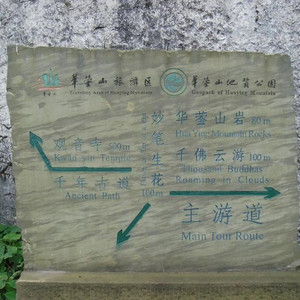 華蓥山旅游区
華蓥山地質公園
Geopark of Huaying Mountain
观音寺 500m
Kwan-yin Temple
千年古道
Ancient Path
妙笔生花
华蓥山岩 80m
Hua Ying Mountain Rocks
千佛云游 100m
Thousand Buddhas
Roaming in Clouds
主游道
Main Tour Route